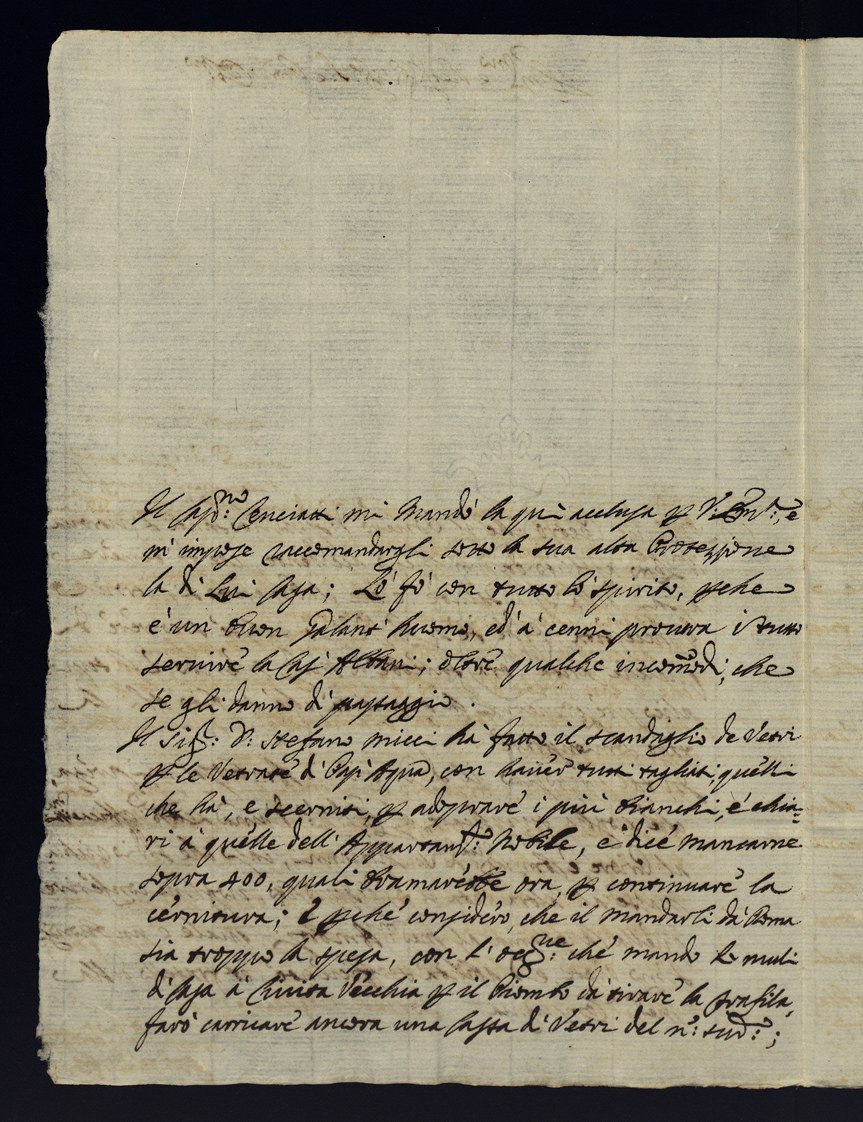 Il Cap.no Cenciatti mi mandò la qui acclusa p V. Em.a, e
m'impose raccomandargli sotto la sua alta Protezzione
la di Lui Casa; Lò fò con tutto lò spirito, pche
è un buon Galant'huomo, ed à cenni procura i tutto
servire la Casa Albani; oltre qualche incomodi, che
se gli danno di passaggio.
Il Sig.r D. Stefano Micci hà fatto il scandaglio de Vetri
p le Vetrate di Cap'Aqua, con haver tutti tagliati, quelli
che hà, e scerniti, p adoprare i più bianchi, è chia=
ri à quelle dell'Appartam.to Nobile, e dice mancarne
sopra 400, quali bramarebbe ora, p continuare la
cernitura; E pche considero, che il mandarli dà Roma
sia troppo la spesa, con l'occ.ne che mando le muli
di Casa à Civita Vecchia p il Piombo dà tirare la trafila,
farò carricare ancora una Cassa di Vetri del n.o sud.o;